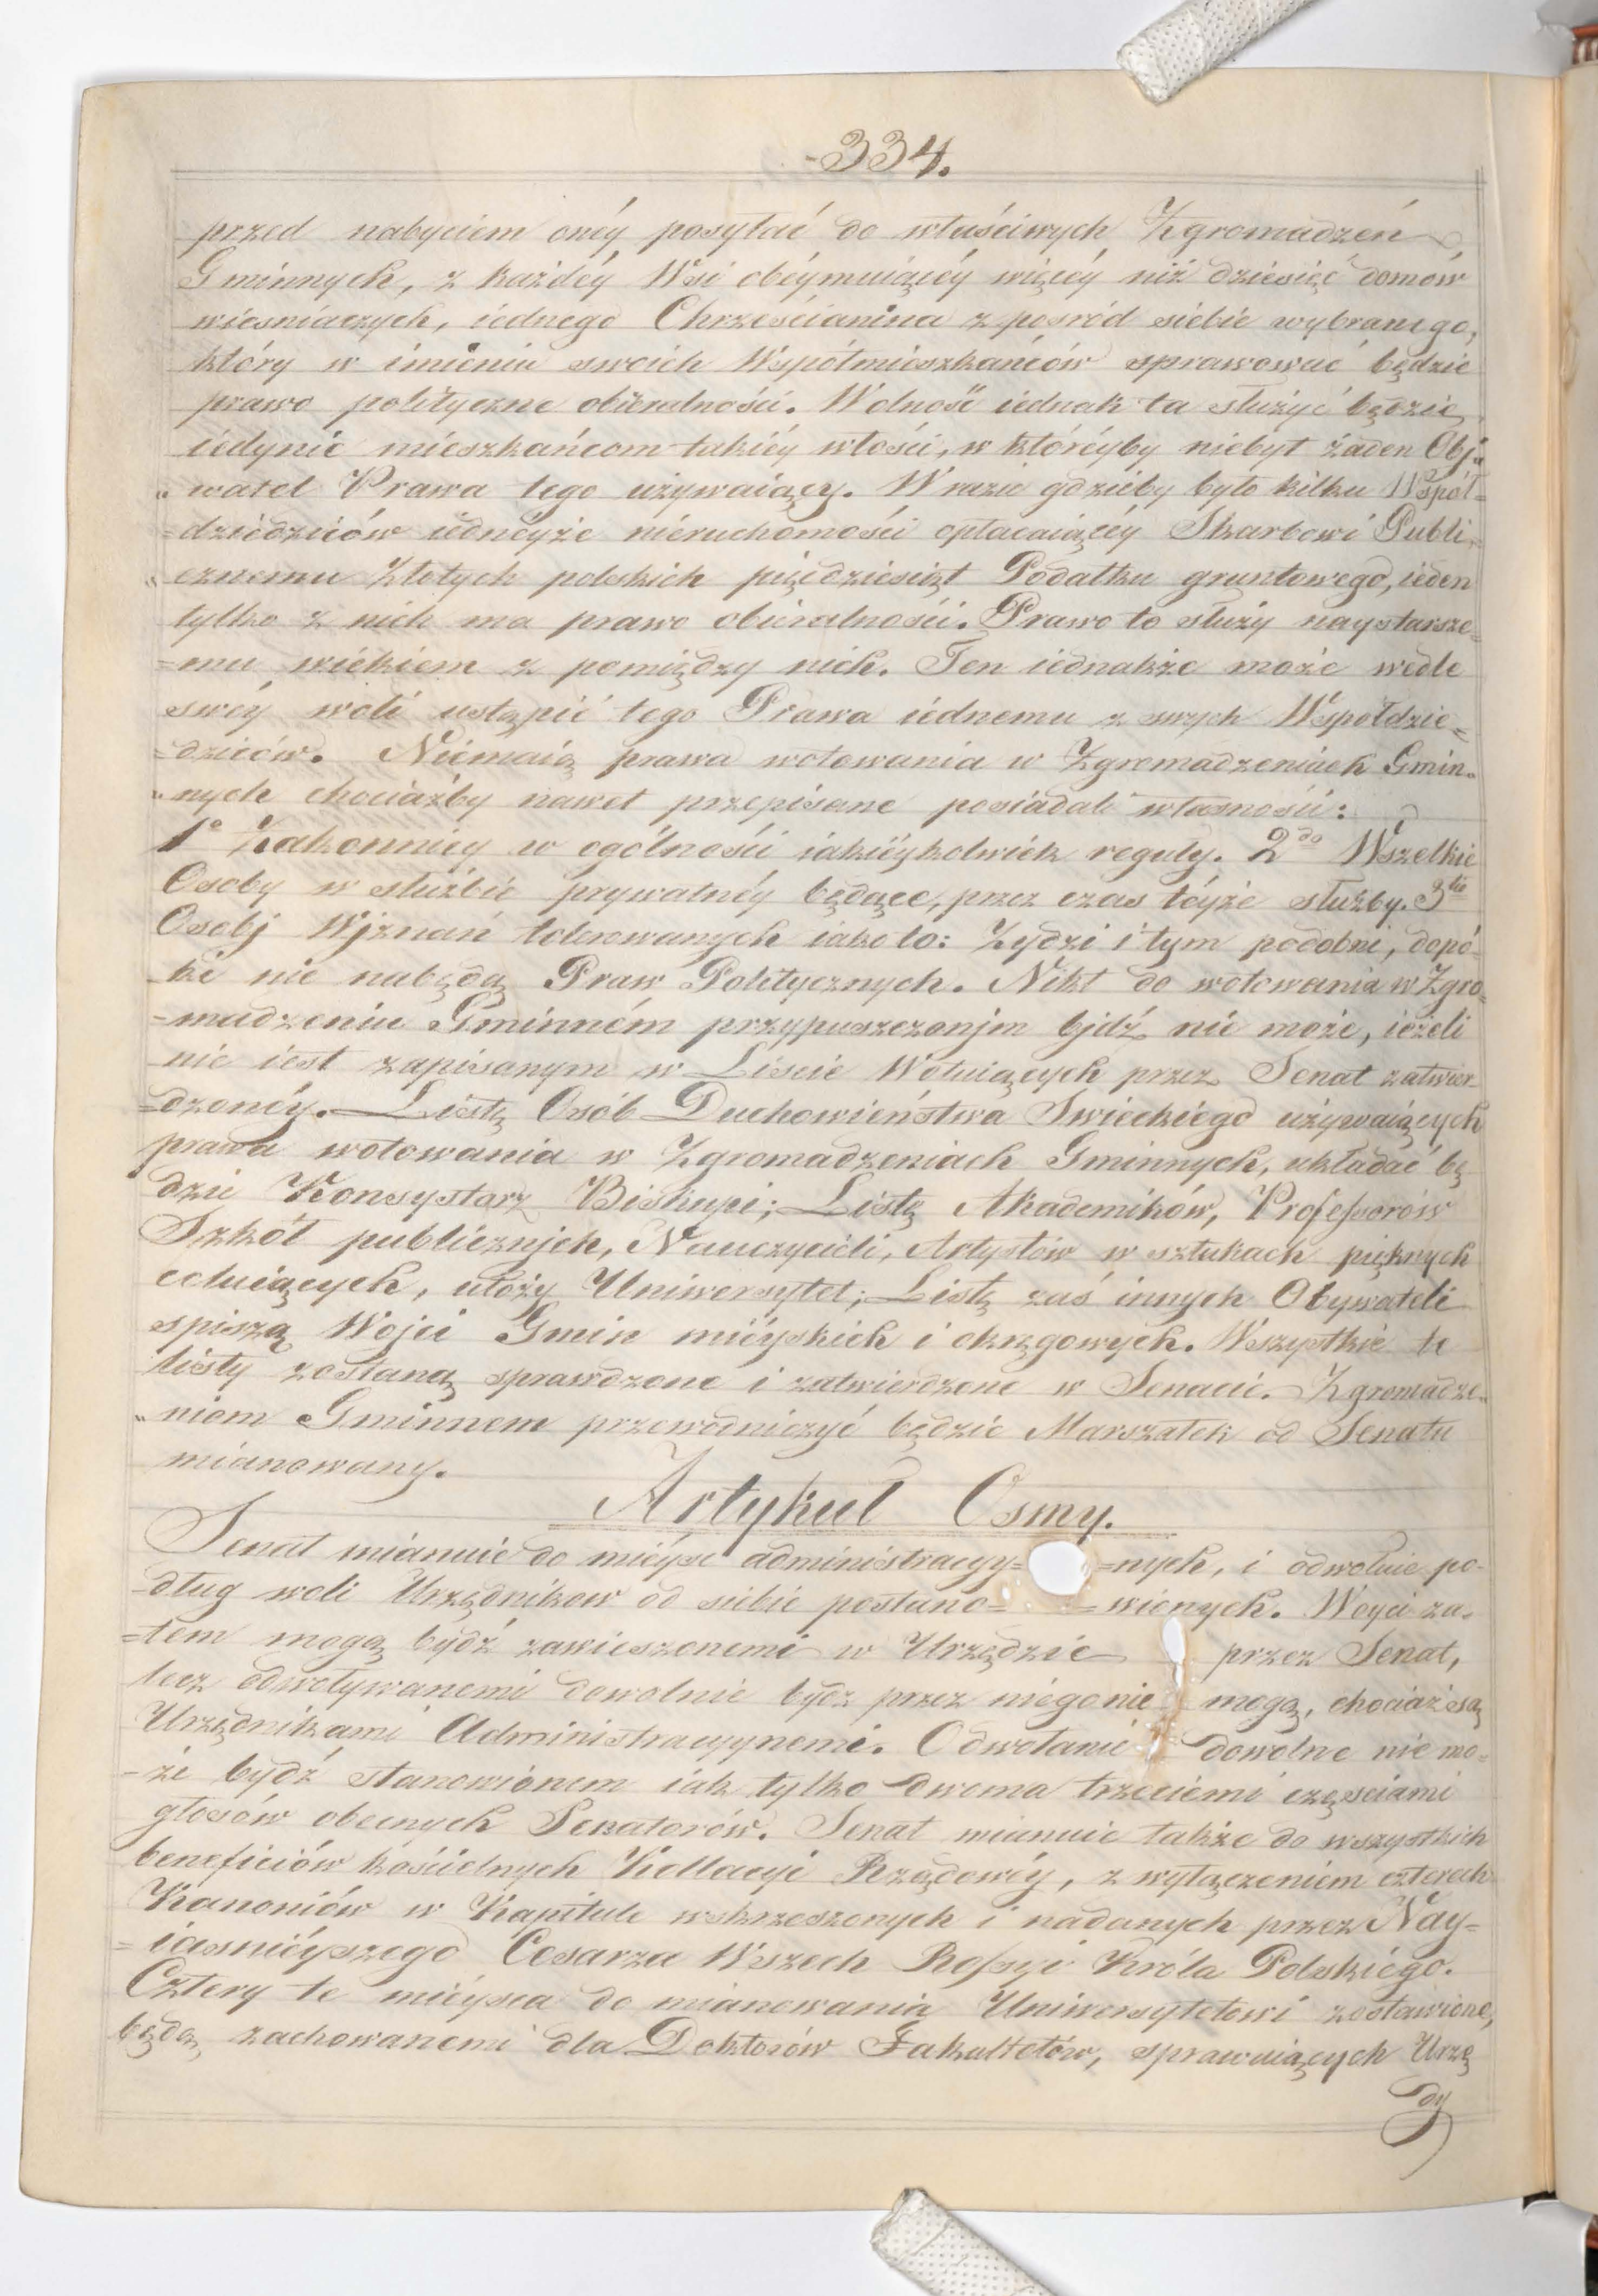 -334.
przed nabyciem onéy posyłać do właściwych Zgromadzeń
Gminnych, z każdéy Wsi obéymuiącéy więcéy niż dziesięć domów
wiesniaczych, iednego Chrześcianina z pośród siebie wybranego,
który w imieniu swoich Współmieszkańców sprawować będzie
prawo polityczne obieralności. Wolność iednak ta służyć będzie
iedynie mieszkańcom takiéy włości, w któréyby niebył żaden Oby„
„watel Prawa tego używaiący. W razie gdzieby było kilku Współ=
=dziedziców iednéyże nieruchomości opłacaiącéy Skarbowi Publi„
„cznemu Złotych polskich pięćdziesiąt Podatku gruntowego, ieden
tylko z nich ma prawo obieralności. Prawo to służy naystarsze=
=mu wiekiem z pomiędzy nich. Ten iednakże może wedle
swéy woli ustąpić tego Prawa iednemu z swych Współdzie„
=dziców. Niemaią prawa wotowania w Zgromadzeniach Gmin„
„nych chociażby nawet przepisane posiadali własności:
1º Zakonnicy w ogólności iakiéykolwiek reguły. 2do Wszelkie
Osoby w służbie prywatnéy będące, przez czas téyże służby. 3tio
Osobj Wjznań tolerowanych iako to: Żydzi i tym podobni, dopó-
ki nie nabędą Praw Politycznych. Nikt do wotowania w Zgro„
=madzeniu Gminném przypuszczonjm bjdź nie może, ieżeli
nie iest zapisanym w Liscie Wotuiących przez Senat zatwier
=dzonéy. Listę Osób Duchowieństwa Swieckiego używaiących
prawa wotowania w Zgromadzeniach Gminnych, układać bę-
dzie Konsystorz Biskupi; Listę Akademików, Professorów
Szkół publicznjch, Nauczycieli, Artystów w sztukach pięknych
celuiących, ułoży Uniwersytet; Listę zaś innych Obywateli
spiszą Wojci Gmin mieyskich i okręgowych. Wszystkie te
listy zostaną sprawdzone i zatwierdzone w Senacie. Zgromadze„
„niom Gminnem przewodniczyć będzie Marszałek od Senatu
mianowany.
Artykuł Osmy.
Senat mianuie do mieysc administracyy= =nych, i odwołuie po-
-dług woli Urzędnikow od siebie postano= =wionych. Woyci za„
=tem mogą bydź zawieszonemi w Urzędzie przez Senat,
lecz odwoływanemi dowolnie bydz przez niego nie mogą, chociaż są
Urzędnikami Administracyynemi. Odwołanie dowolne nie mo=
-że bydź stanowionem iak tylko dwoma trzeciemi częściami
głosów obecnych Senatorów. Senat mianuie także do wszystkich
beneficiów kościelnych Kollacyi Rządowéy, z wyłączeniem czterech
Kanoniów w Kapitule wskrzeszonych i nadanych przez Nay=
=iasniéyszego Cesarza Wszech Rossyi Króla Polskiégo.
Cztery te mieysca do mianowania Uniwersytetowi zostawione,
będą zachowanemi dla Doktorów Fakultetów, sprawuiących Urzę
dy